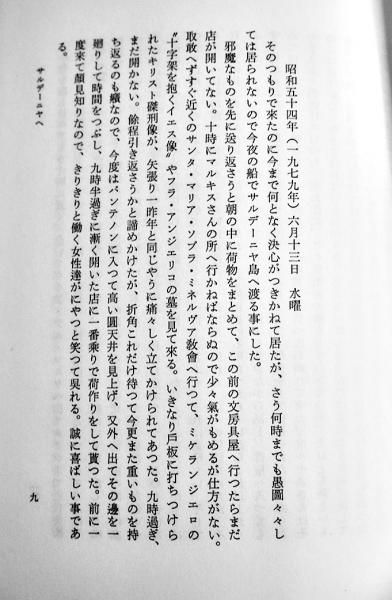 昭和五十四年（一九七九年）六月十三日　水曜
そのつもりで来たのに今まで何となく決心がつきかねて居たが、さう何時までも愚圖々々し
ては居られないので今夜の船でサルデーニャ島へ渡る事にした。
邪魔なものを先に送り返さうと朝の中に荷物をまとめて、この前の文房具屋へ行つたらまだ
店が開いてない。十時にマルキスさんの所へ行かねばならぬので少々氣がもめるが仕方がない。
取敢へずすぐ近くのサンタ・マリア・ソプラ・ミネルヴァ教會へ行つて、ミケランジエロの
〝十字架を抱くイエス像〟やフラ・アンジエリコの墓を見て來る。いきなり戸板に打ちつけら
れたキリスト磔刑像が、矢張り一昨年と同じやうに痛々しく立てかけられてあつた。九時過ぎ、
まだ開かない。餘程引き返さうかと諦めかけたが、折角これだけ待つて今更また重いものを持
ち返るのも癪なので、今度はパンテノンに入つて高い圓天井を見上げ、又外へ出てその邊を一
廻りして時間をつぶし、九時半過ぎに漸く開いた店に一番乗りで荷作りをして貰つた。前に一
度來て顔見知りなので、きりきりと働く女性達がにやつと笑つて呉れる。誠に喜ばしい事であ
る。
サルデーニャへ
九